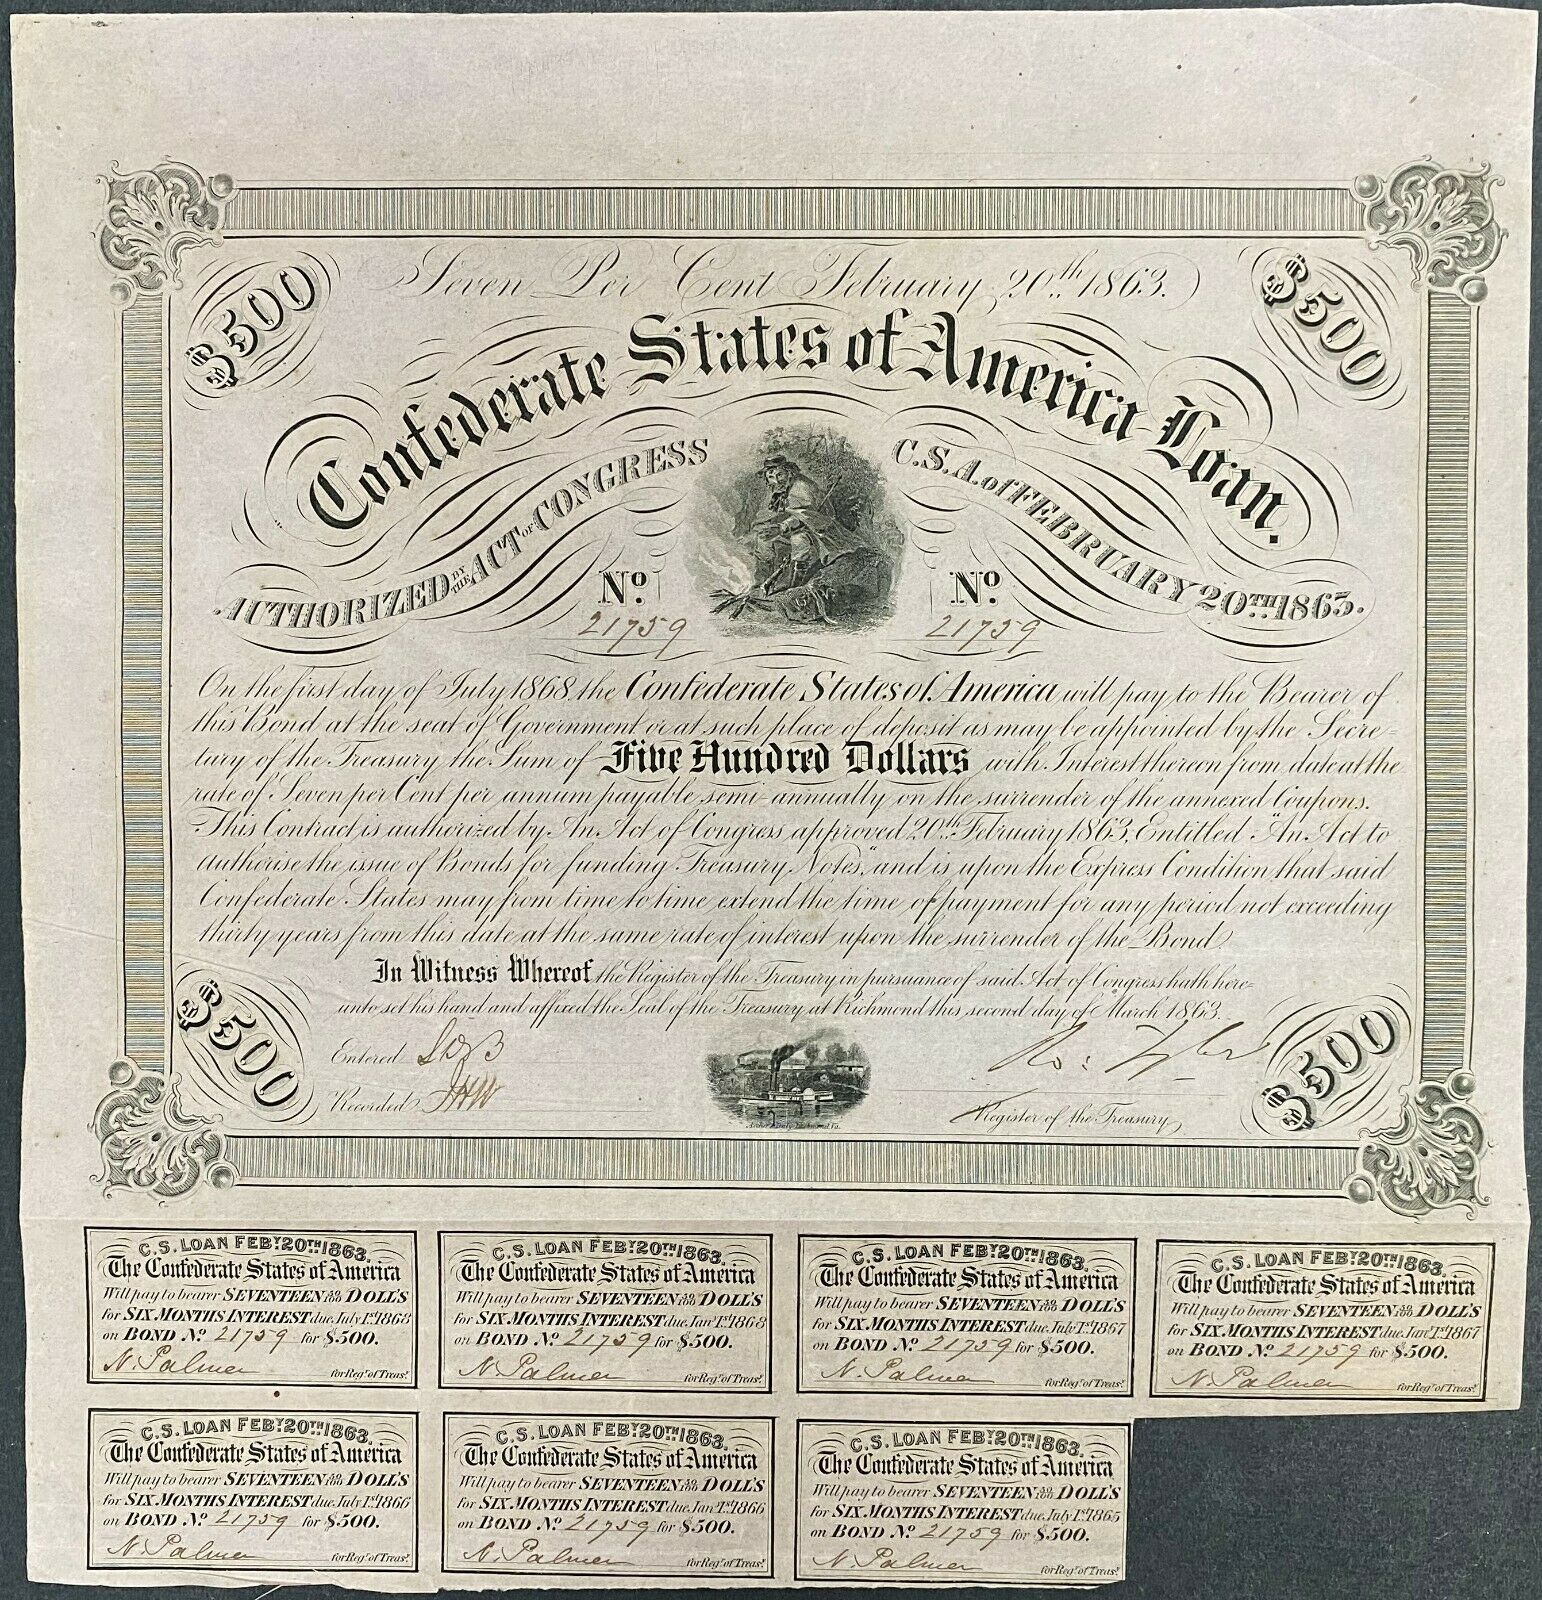 Seven Per Cent February 20th 1863.
$500
$500
Confederate States of America Loan.
AUTHORIZED BY THE ACT OF CONGRESS C.S.A. of FEBRUARY 20TH 1863.
No. No.
21759 21759
On the first day of July 1868 the Confederate States of America will pay to the Bearer of
this Bond at the seat of Government or at such place of deposit as may be appointed by the Secre-
tary of the Treasury the Sum of Five Hundred Dollars with Interest thereon from date at the
rate of Seven per Cent per annum payable semi-annually on the surrender of the annexed Coupons.
This Contract is authorized by An Act of Congress approved 20th February 1863, Entitled "An Act to
authorise the issue of Bonds for funding Treasury Notes," and is upon the Express Condition that said
Confederate States may from time to time extend the time of payment for any period not exceeding
thirty years from this date at the same rate of interest upon the surrender of the Bond.
In Witness Whereof the Register of the Treasury in pursuance of said Act of Congress hath here-
unto set his hand and affixed the Seal of the Treasury at Richmond this second day of March 1863.
$500
$500
Entered
Recorded JHW
Ro: Tyler
Register of the Treasury
Richmond Va.
C.S. LOAN FEBY. 20TH 1863.
The Confederate States of America
Will pay to bearer SEVENTEEN 50/100 DOLL'S
for SIX MONTHS INTEREST due July 1st 1868
on BOND No. 21759 for $500.
N. Palmer
for Regr. of Treasy.
C.S. LOAN FEBY. 20TH 1863.
The Confederate States of America
Will pay to bearer SEVENTEEN 50/100 DOLL'S
for SIX MONTHS INTEREST due Jany 1st 1868
on BOND No. 21759 for $500.
N. Palmer
for Regr. of Treasy.
C.S. LOAN FEBY. 20TH 1863.
The Confederate States of America
Will pay to bearer SEVENTEEN 50/100 DOLL'S
for SIX MONTHS INTEREST due July 1st 1867
on BOND No. 21759 for $500.
N. Palmer
for Regr. of Treasy.
C.S. LOAN FEBY. 20TH 1863.
The Confederate States of America
Will pay to bearer SEVENTEEN 50/100 DOLL'S
for SIX MONTHS INTEREST due Jany 1st 1867
on BOND No. 21759 for $500.
N. Palmer
for Regr. of Treasy.
C.S. LOAN FEBY. 20TH 1863.
The Confederate States of America
Will pay to bearer SEVENTEEN 50/100 DOLL'S
for SIX MONTHS INTEREST due July 1st 1866
on BOND No. 21759 for $500.
N. Palmer
for Regr. of Treasy.
C.S. LOAN FEBY. 20TH 1863.
The Confederate States of America
Will pay to bearer SEVENTEEN 50/100 DOLL'S
for SIX MONTHS INTEREST due Jany 1st 1866
on BOND No. 21759 for $500.
N. Palmer
for Regr. of Treasy.
C.S. LOAN FEBY. 20TH 1863.
The Confederate States of America
Will pay to bearer SEVENTEEN 50/100 DOLL'S
for SIX MONTHS INTEREST due July 1st 1865
on BOND No. 21759 for $500.
N. Palmer
for Regr. of Treasy.